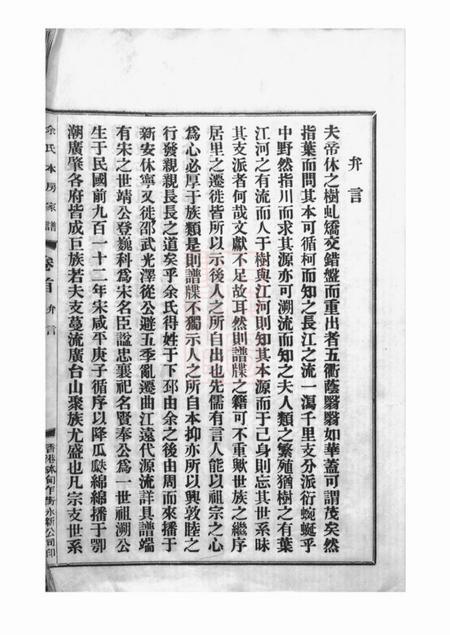 弁言
夫帝休之樹虬矯交錯盤而重出者五衢蔭翳翳如華蓋可謂茂矣然
指葉而問其本可循柯而知之長江之流一瀉千里支分派衍蜿蜒乎
中野然指川而求其源亦可溯流而知之夫人類之繁殖猶樹之有葉
江河之有流而人于樹與江河則知其本源而于己身則忘其世系昧
其支派者何哉文獻不足故耳然則譜牒之籍可不重歟世族之繼序
居里之遷徙皆所以示後人之所自出也先儒有言人能以祖宗之心
爲心必厚于族類是則譜牒不獨示人之所自本抑亦所以興敦睦之
行發親親長長之道矣乎余氏得姓于下邳由余之後由周而來播于
新安休寧又徙邵武光澤從公避五季亂遷曲江遠代源流詳具譜端
有宋之世靖公登巍科爲宋名臣諡忠襄祀名賢奉公爲一世祖溯公
生于民國前九百一十二年宋咸平庚子循序以降瓜瓞綿綿播于卾
潮廣肇各府皆成巨族若夫支蔓流廣台山聚族尤盛也凡宗支世系
余氏本房家譜 卷首 弁言
香港砵甸乍街永新公司印